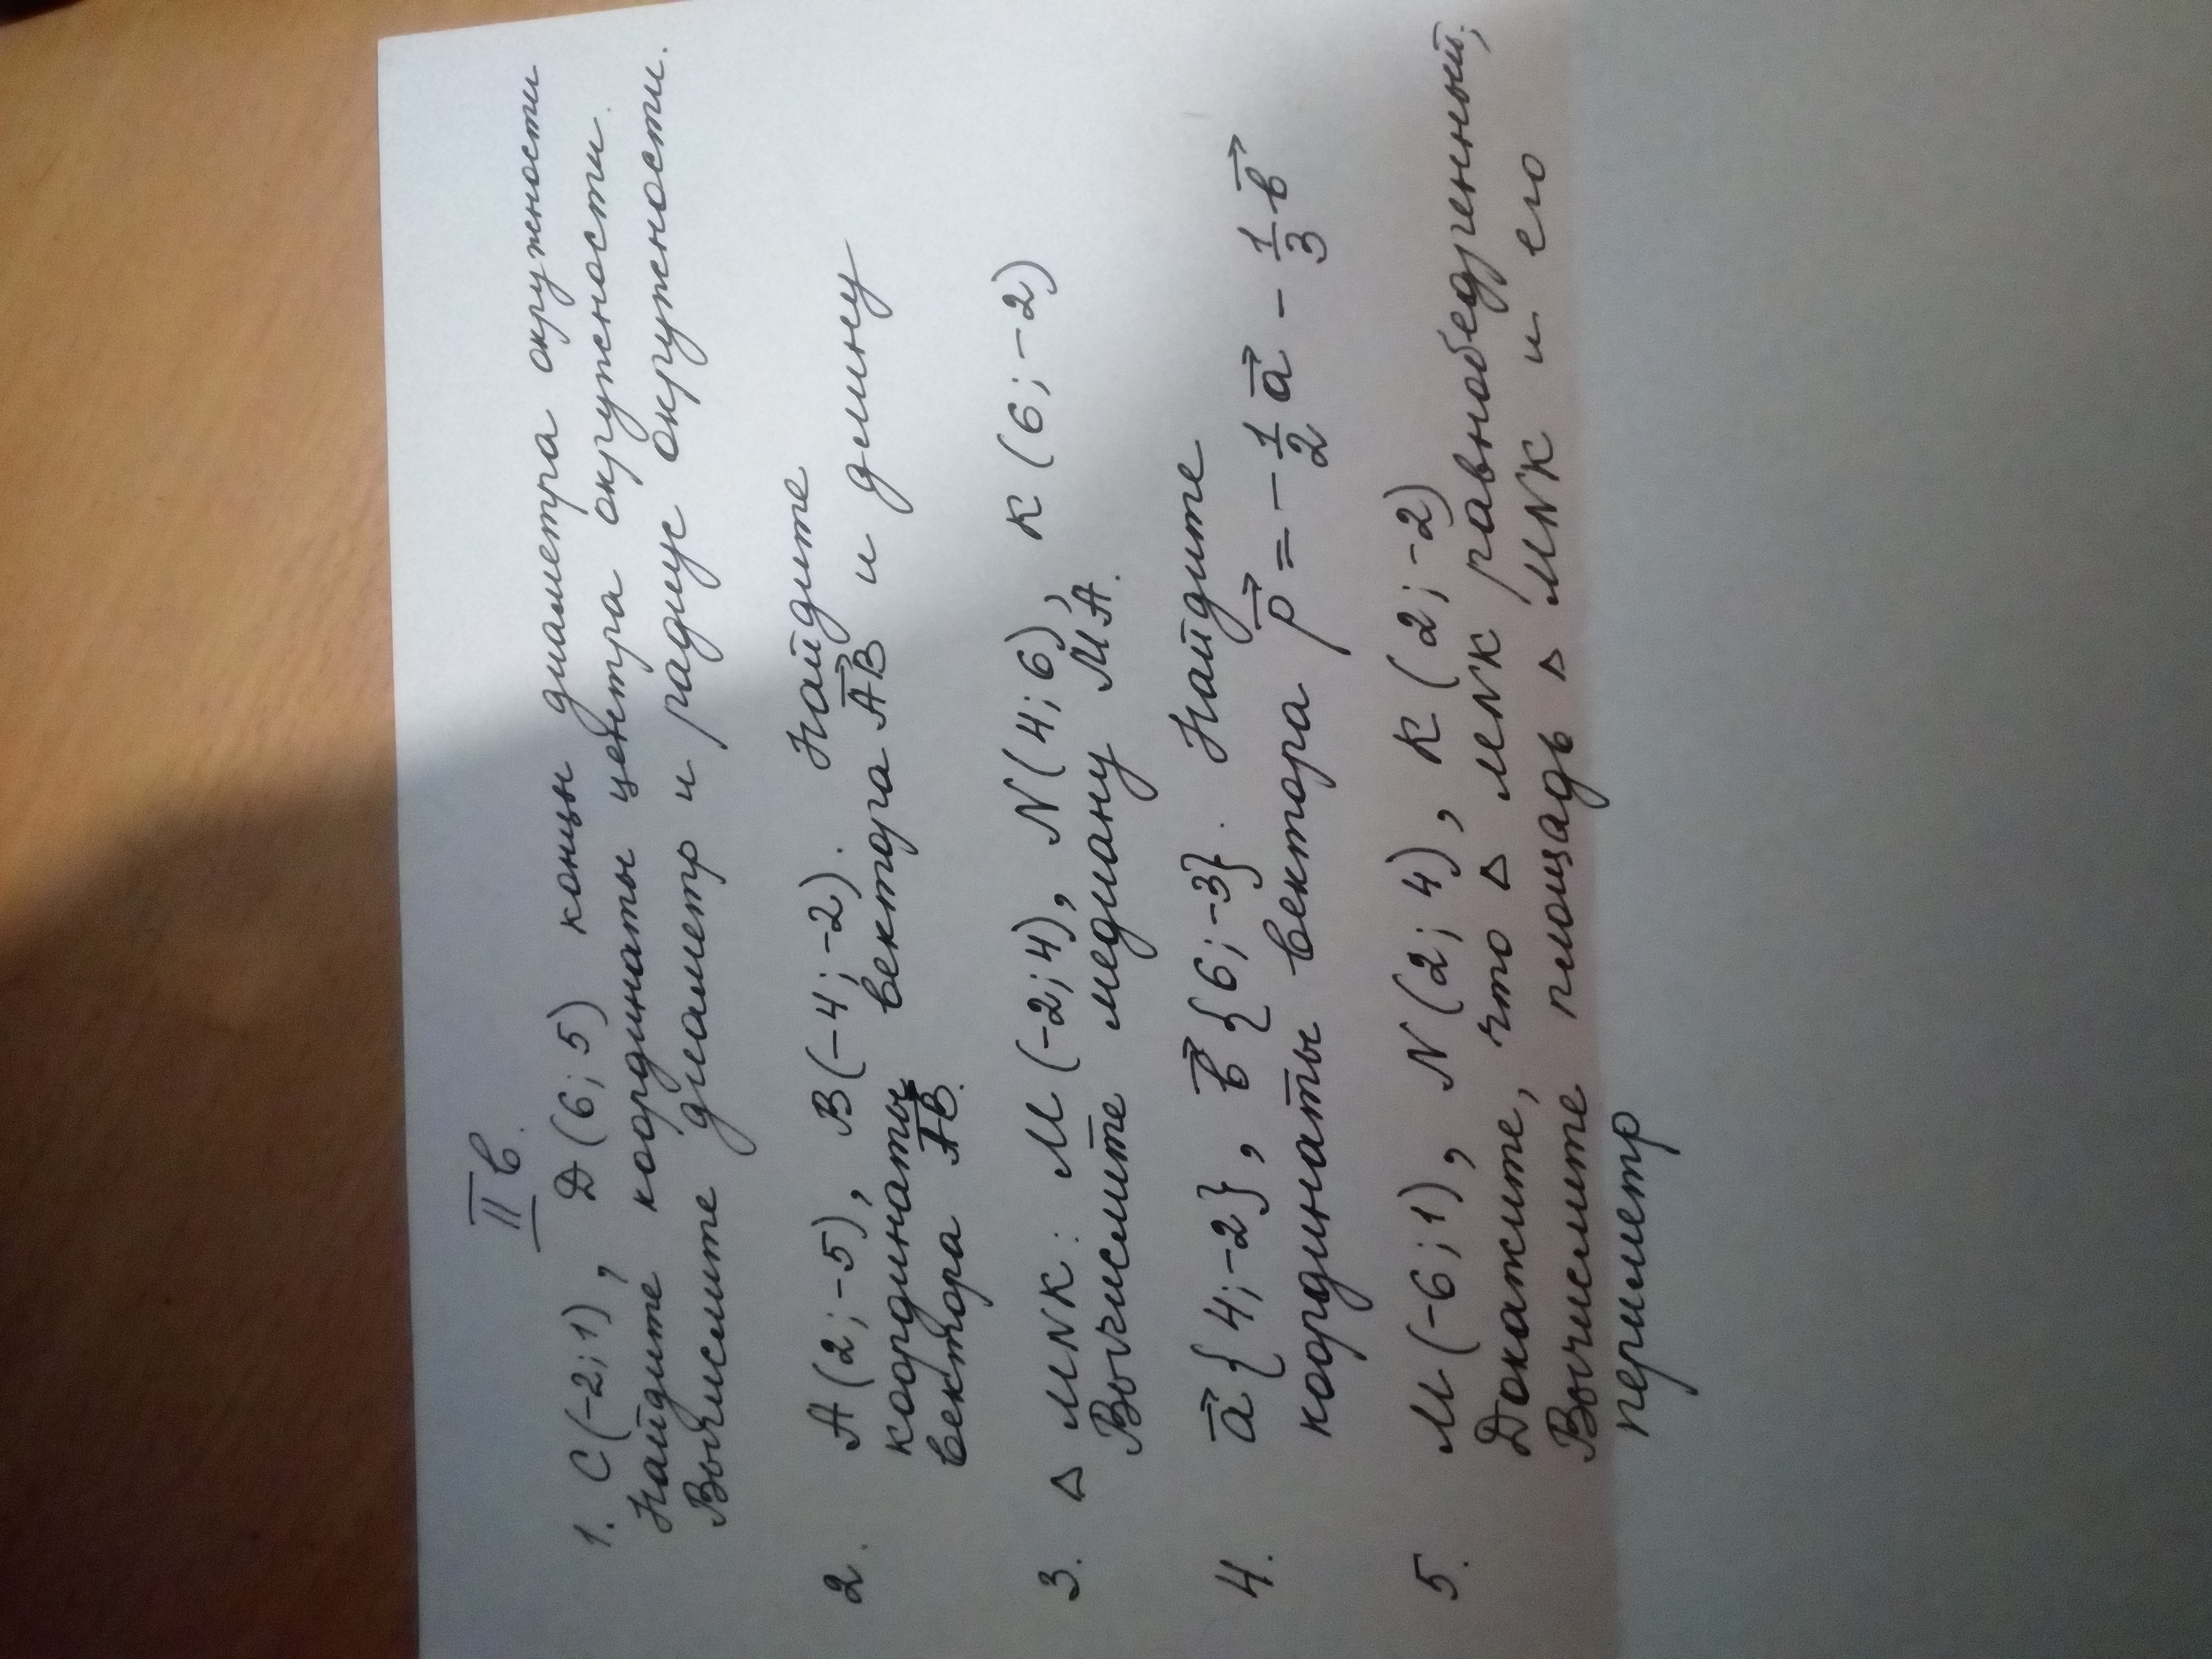 II в.
1. С(-2; 1), D(6; 5) концы диаметра окружности
Найдите координаты центра окружности.
Вычислите диаметр и радиус окружности.
2. А(2; -5), В(-4; -2). Найдите
координаты вектора АВ и длину
вектора АВ.
3. △ MNK: M(-2; 4), N(4; 6), K(6; -2)
Вычислите медиану МА.
4. a{4; -2}, в{6; -3}. Найдите
координаты вектора p = -1/2 a - 1/3 в
5. M(-6; 1), N(2; 4), K(2; -2)
Докажите, что △ MNK равнобедренный;
Вычислите площадь △ MNK и его
периметр